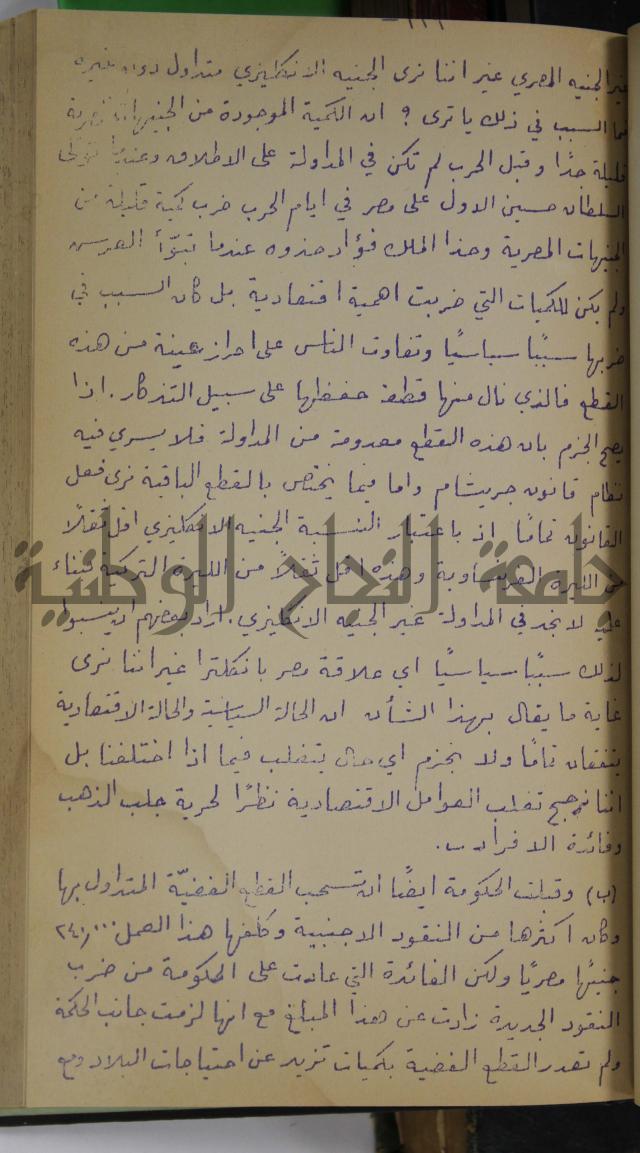 غير الجنيه المصري غير اننا نرى الجنيه الانكليزي متداول دون غيره
فما السبب في ذلك يا ترى ؟ ان الكمية الموجودة من الجنيهات المصرية
قليلة جدًا وقبل الحرب لم تكن في المداولة على الاطلاق وعندما تولى
السلطان حسين الاول على مصر في ايام الحرب ضرب كمية قليلة من
الجنيهات المصرية وحذا الملك فؤاد حذوه عندما تبوّأ العرش
ولم يكن للكميات التي ضربت اهمية اقتصادية بل كان السبب في
ضربها سببًا سياسيًا وتفاوت الناس على احراز عينة من هذه
القطع فالذي نال منها قطعة حفظها على سبيل التذكار. اذا
يصح الجزم بان هذه القطع معدومة من المداولة فلا يسري فيه
نظام قانون جريشام واما فيما يختص بالقطع الباقية نرى فعل
القانون تمامًا اذ باعتبار النسبة الجنيه الانكليزي اقل ثقلًا
من الليرة الفرنساوية وهذه اقل ثقلًا من الليرة التركية فبناء
عليه لا نجد في المداولة غير الجنيه الانكليزي. اراد بعضهم ان ينسبوا
لذلك سببًا سياسيًا اي علاقة مصر بانكلترا غير اننا نرى
غاية ما يقال بهذا الشأن ان الحالة السياسية والحالة الاقتصادية
يتفقان تمامًا ولا نجزم اي حال يتغلب فيما اذا اختلفنا بل
اننا نرجح تغلب العوامل الاقتصادية نظرًا لحرية جلب الذهب
وفائدة الافراد.
(ب) وقبلت الحكومة ايضًا ان تسحب القطع الفضيّة المتداول بها
وكان اكثرها من النقود الاجنبية وكلفها هذا العمل
جنيهًا مصريًا ولكن الفائدة التي عادت على الحكومة من ضرب
النقود الجديدة زادت عن هذا المبلغ مع انها لزمت جانب الحكمة
ولم تصدر القطع الفضية بكميات تزيد عن احتياجات البلاد ومع
جامعة النجاح الوطنية